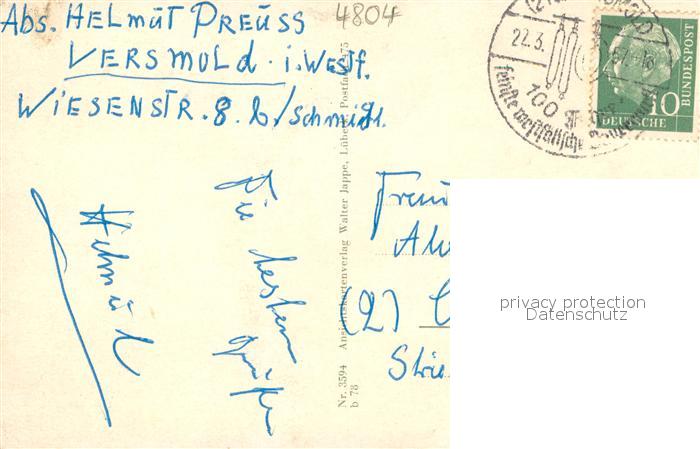 4804
Abs. HELMUT PREUSS
VERSMOLD. i. Westf.
WIESENSTR. 8. b/Schmidt.
22.3. 57-18
100
feinste westfälische
10
DEUTSCHE
BUNDESPOST
Die besten
Grüße
Helmut
Nr. 3594 Ansichtskartenverlag Walter Jappe, Lübeck, Postfach 75
b 78
(2)
privacy protection
Datenschutz